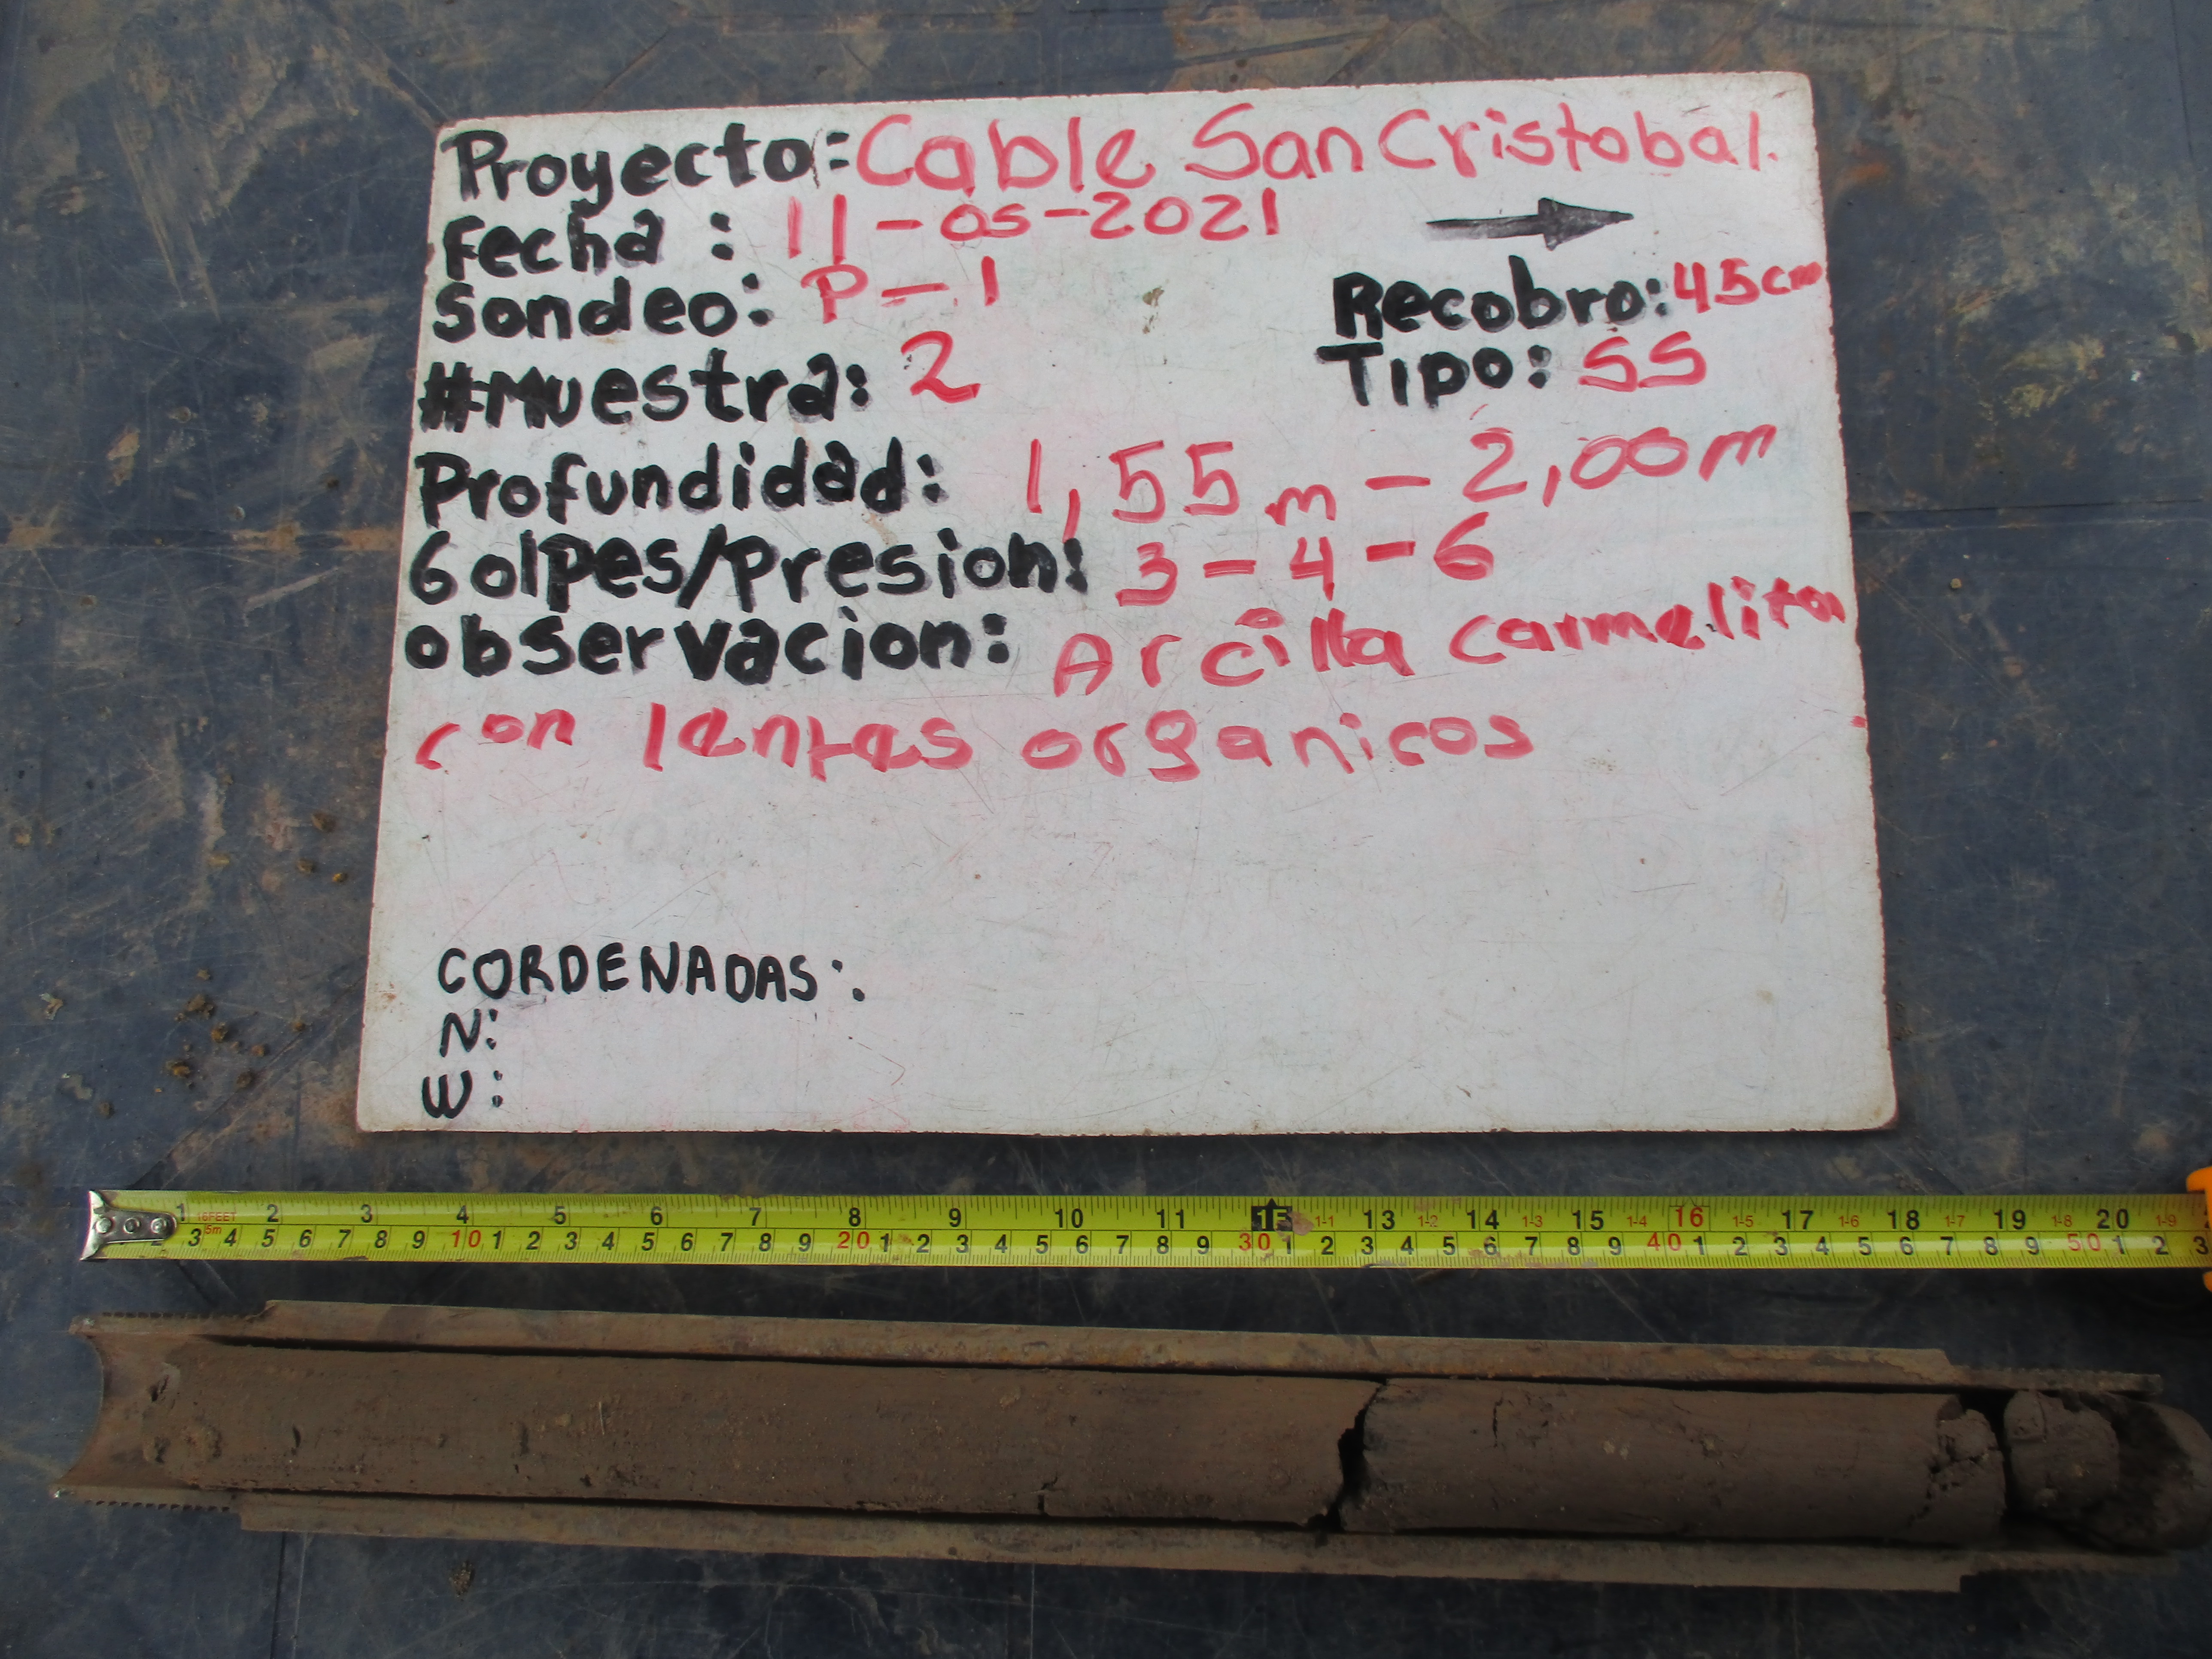 Proyecto: Cable San Cristobal.
Fecha : 11-05-2021
Sondeo: P-1
Recobro: 45cm
#Muestra: 2
Tipo: SS
Profundidad: 1,55m - 2,00m
Golpes/Presion: 3-4-6
observacion: Arcilla carmelita
con lentes organicos
CORDENADAS:
N:
W:
1 16FEET 2 3 4 5 6 7 8 9 10 11 1F 1-1 13 1-2 14 1-3 15 1-4 16 1-5 17 1-6 18 1-7 19 1-8 20 1-9
3 5m 4 5 6 7 8 9 10 1 2 3 4 5 6 7 8 9 20 1 2 3 4 5 6 7 8 9 30 1 2 3 4 5 6 7 8 9 40 1 2 3 4 5 6 7 8 9 50 1 2 3